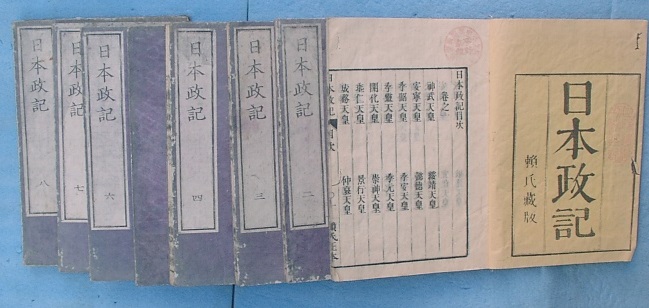 日本政記
賴氏藏版
日本政記目次
卷之
神武天皇 綏靖天皇
安寧天皇 懿德天皇
孝昭天皇 孝安天皇
孝靈天皇 孝元天皇
開化天皇 崇神天皇
垂仁天皇 景行天皇
成務天皇 仲哀天皇
日本政記 目次
日本政記 二
日本政記 三
日本政記 四
日本政記 六
日本政記 七
日本政記 八